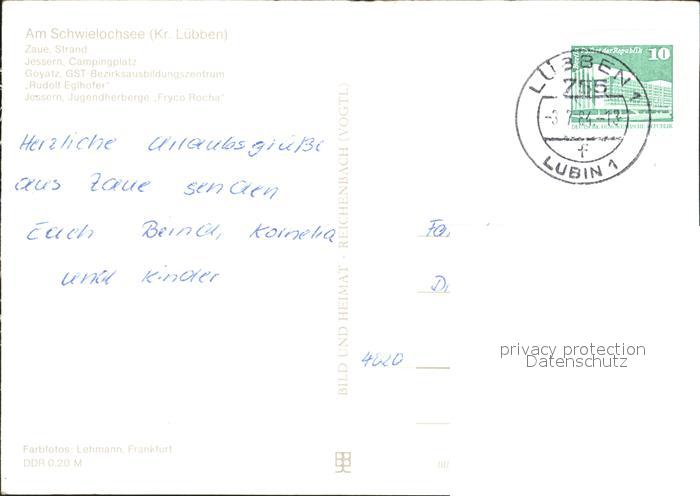 Am Schwielochsee (Kr. Lübben)
Zaue, Strand
Jessern, Campingplatz
Goyatz, GST-Bezirksausbildungszentrum
„Rudolf Eglhofer“
Jessern, Jugendherberge „Fryco Rocha“
Herzliche Urlaubsgrüße
aus Zaue senden
Euch Bernd, Kornelia
und Kinder
Farbfotos: Lehmann, Frankfurt
DDR 0,20 M
BILD UND HEIMAT · REICHENBACH (VOGTL)
der Republik 10
DEUTSCHE DEMOKRATISCHE REPUBLIK
LÜBBEN 1
755
-3.7.84.-18
f
LUBIN 1
Fa
D
4020
privacy protection
Datenschutz
III/